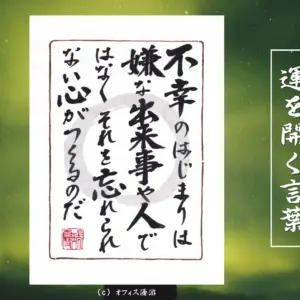 不幸のはじまりは
嫌な出来事や人で
はなくそれを忘れられ
ない心がつくるのだ
運を開く言葉